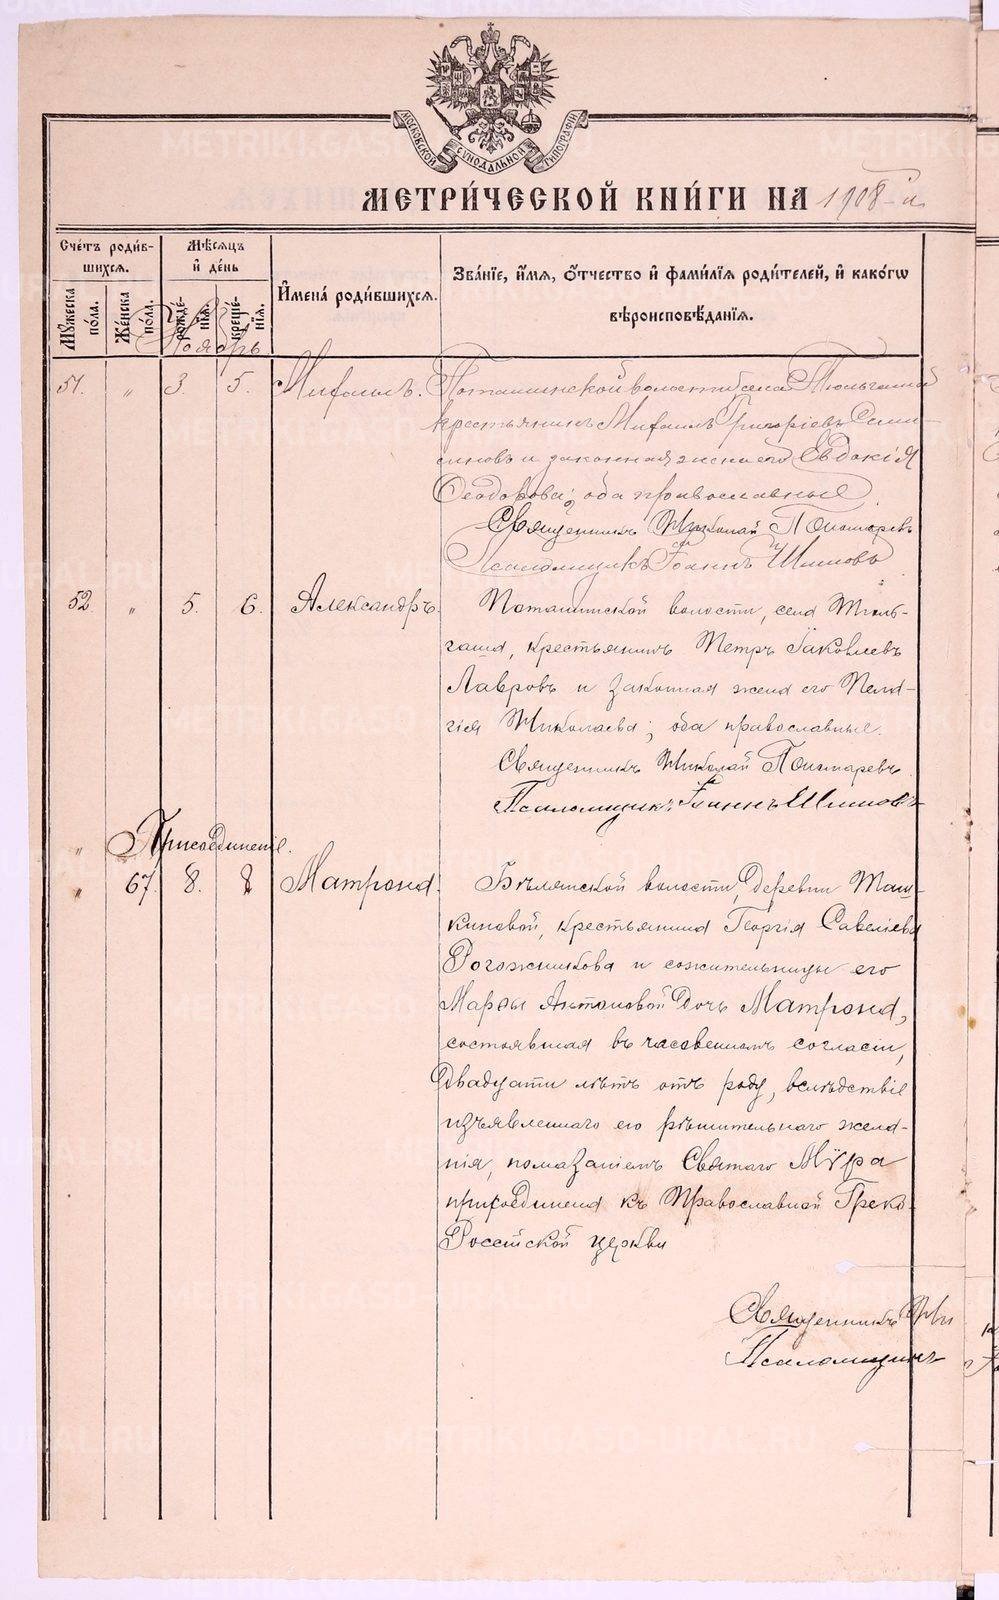 МОСКОВСКОЙ СУНОДАЛЬНОЙ ТИПОГРАФІИ
МЕТРИ́ЧЕСКОЙ КНИ́ГИ НА 1908-й
Сче́тъ роди́в-
шихсѧ.
Мꙋ́жеска по́ла.
Же́нска по́ла.
Мѣ́сѧцъ
и҆ де́нь
рожде́нїѧ.
креще́нїѧ.
И҆мена̀ роди́вшихсѧ.
Зва́нїе, и҆́мѧ, ѻ҆́тчество и҆ фами́лїѧ роди́телей, и҆ како́гѡ
вѣроисповѣ́данїѧ.
Ноябрь
51. „ 3. 5. Михаилъ. Поташинской волости села Тюльгашъ
крестьянинъ Михаилъ Григоріевъ
и законная жена его Евдокія
Ѳеодорова; оба православные
Священникъ Николай Пономаревъ
Псаломщикъ Іоаннъ Шишовъ
52 „ 5. 6. Александръ. Поташинской волости, села Тюль-
гаша, крестьянинъ Петръ Іаковлевъ
Лавровъ и законная жена его Пела-
гія Николаева; оба православные.
Священникъ Николай Пономаревъ
Псаломщикъ Іоаннъ Шишовъ
„ Присоединеніе.
„ 67. 8. 8 Матрона. Бѣлятской волости, деревни Таш-
киновой, крестьянина Георгія Савеліева
Рогожникова и сожительницы его
Марѳы Антоновой дочь Матрона,
состоявшая въ часовенномъ согласіи,
двадцати лѣтъ отъ роду, вслѣдствіе
изъявленнаго ею рѣшительнаго жела-
нія, помазаніемъ Святаго Мѵра
присоединена къ Православной Греко-
Россійской церкви
Священникъ Ни
Псаломщикъ
METRIKI.GASO-URAL.RU